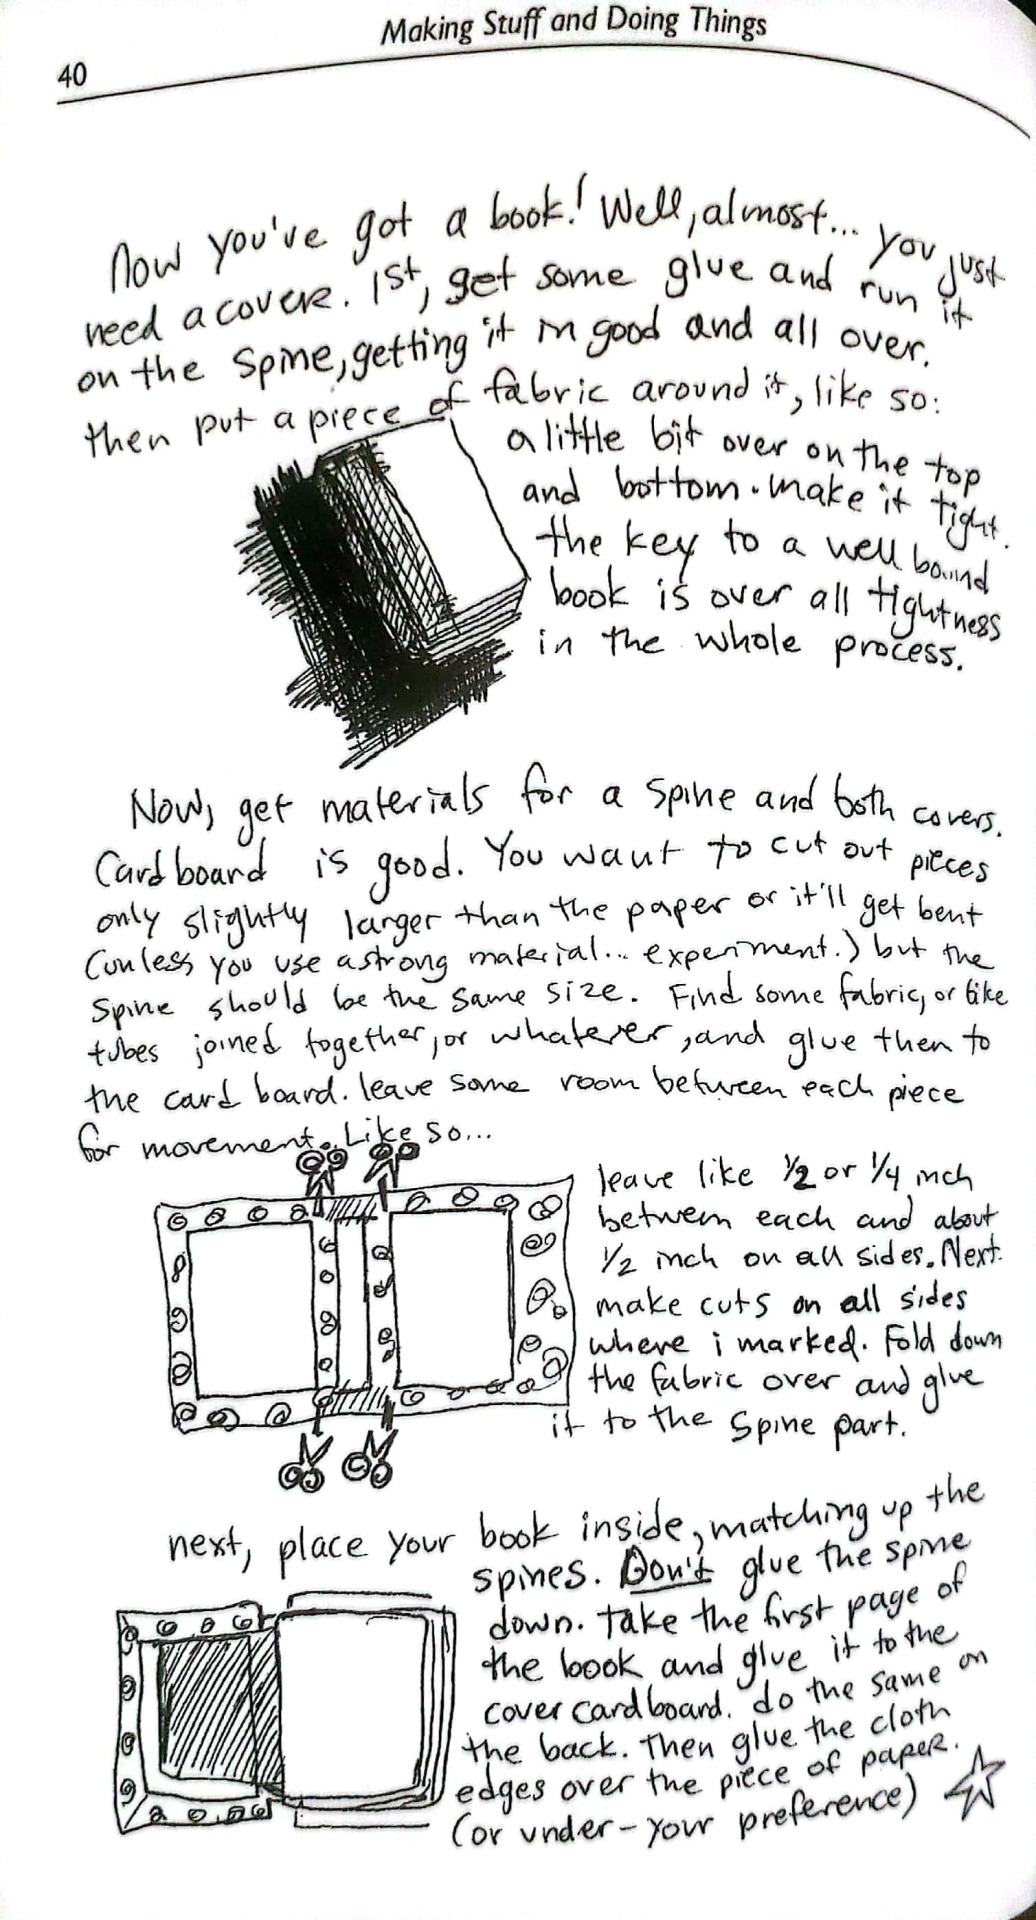 Making Stuff and Doing Things
40
Now you've got a book! Well, almost... you just
need a cover. 1st, get some glue and run it
on the spine, getting it in good and all over.
then put a piece of fabric around it, like so:
a little bit over on the top
and bottom. make it tight.
the key to a well bound
book is over all tightness
in the whole process.
Now, get materials for a spine and both covers.
Cardboard is good. You want to cut out pieces
only slightly larger than the paper or it'll get bent
(unless you use a strong material... experiment.) but the
spine should be the same size. Find some fabric, or bike
tubes joined together, or whatever, and glue then to
the card board. leave some room between each piece
for movement. Like so...
leave like 1/2 or 1/4 inch
between each and about
1/2 inch on all sides. Next
make cuts on all sides
where i marked. Fold down
the fabric over and glue
it to the spine part.
next, place your book inside, matching up the
spines. Don't glue the spine
down. take the first page of
the book and glue it to the
cover cardboard. do the same on
the back. Then glue the cloth
edges over the piece of paper.
(or under - your preference)